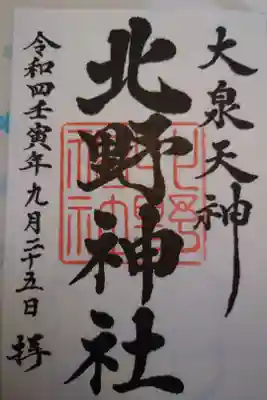 大泉天神
北野神社
令和四壬寅年九月二十五日 拝
北野神社